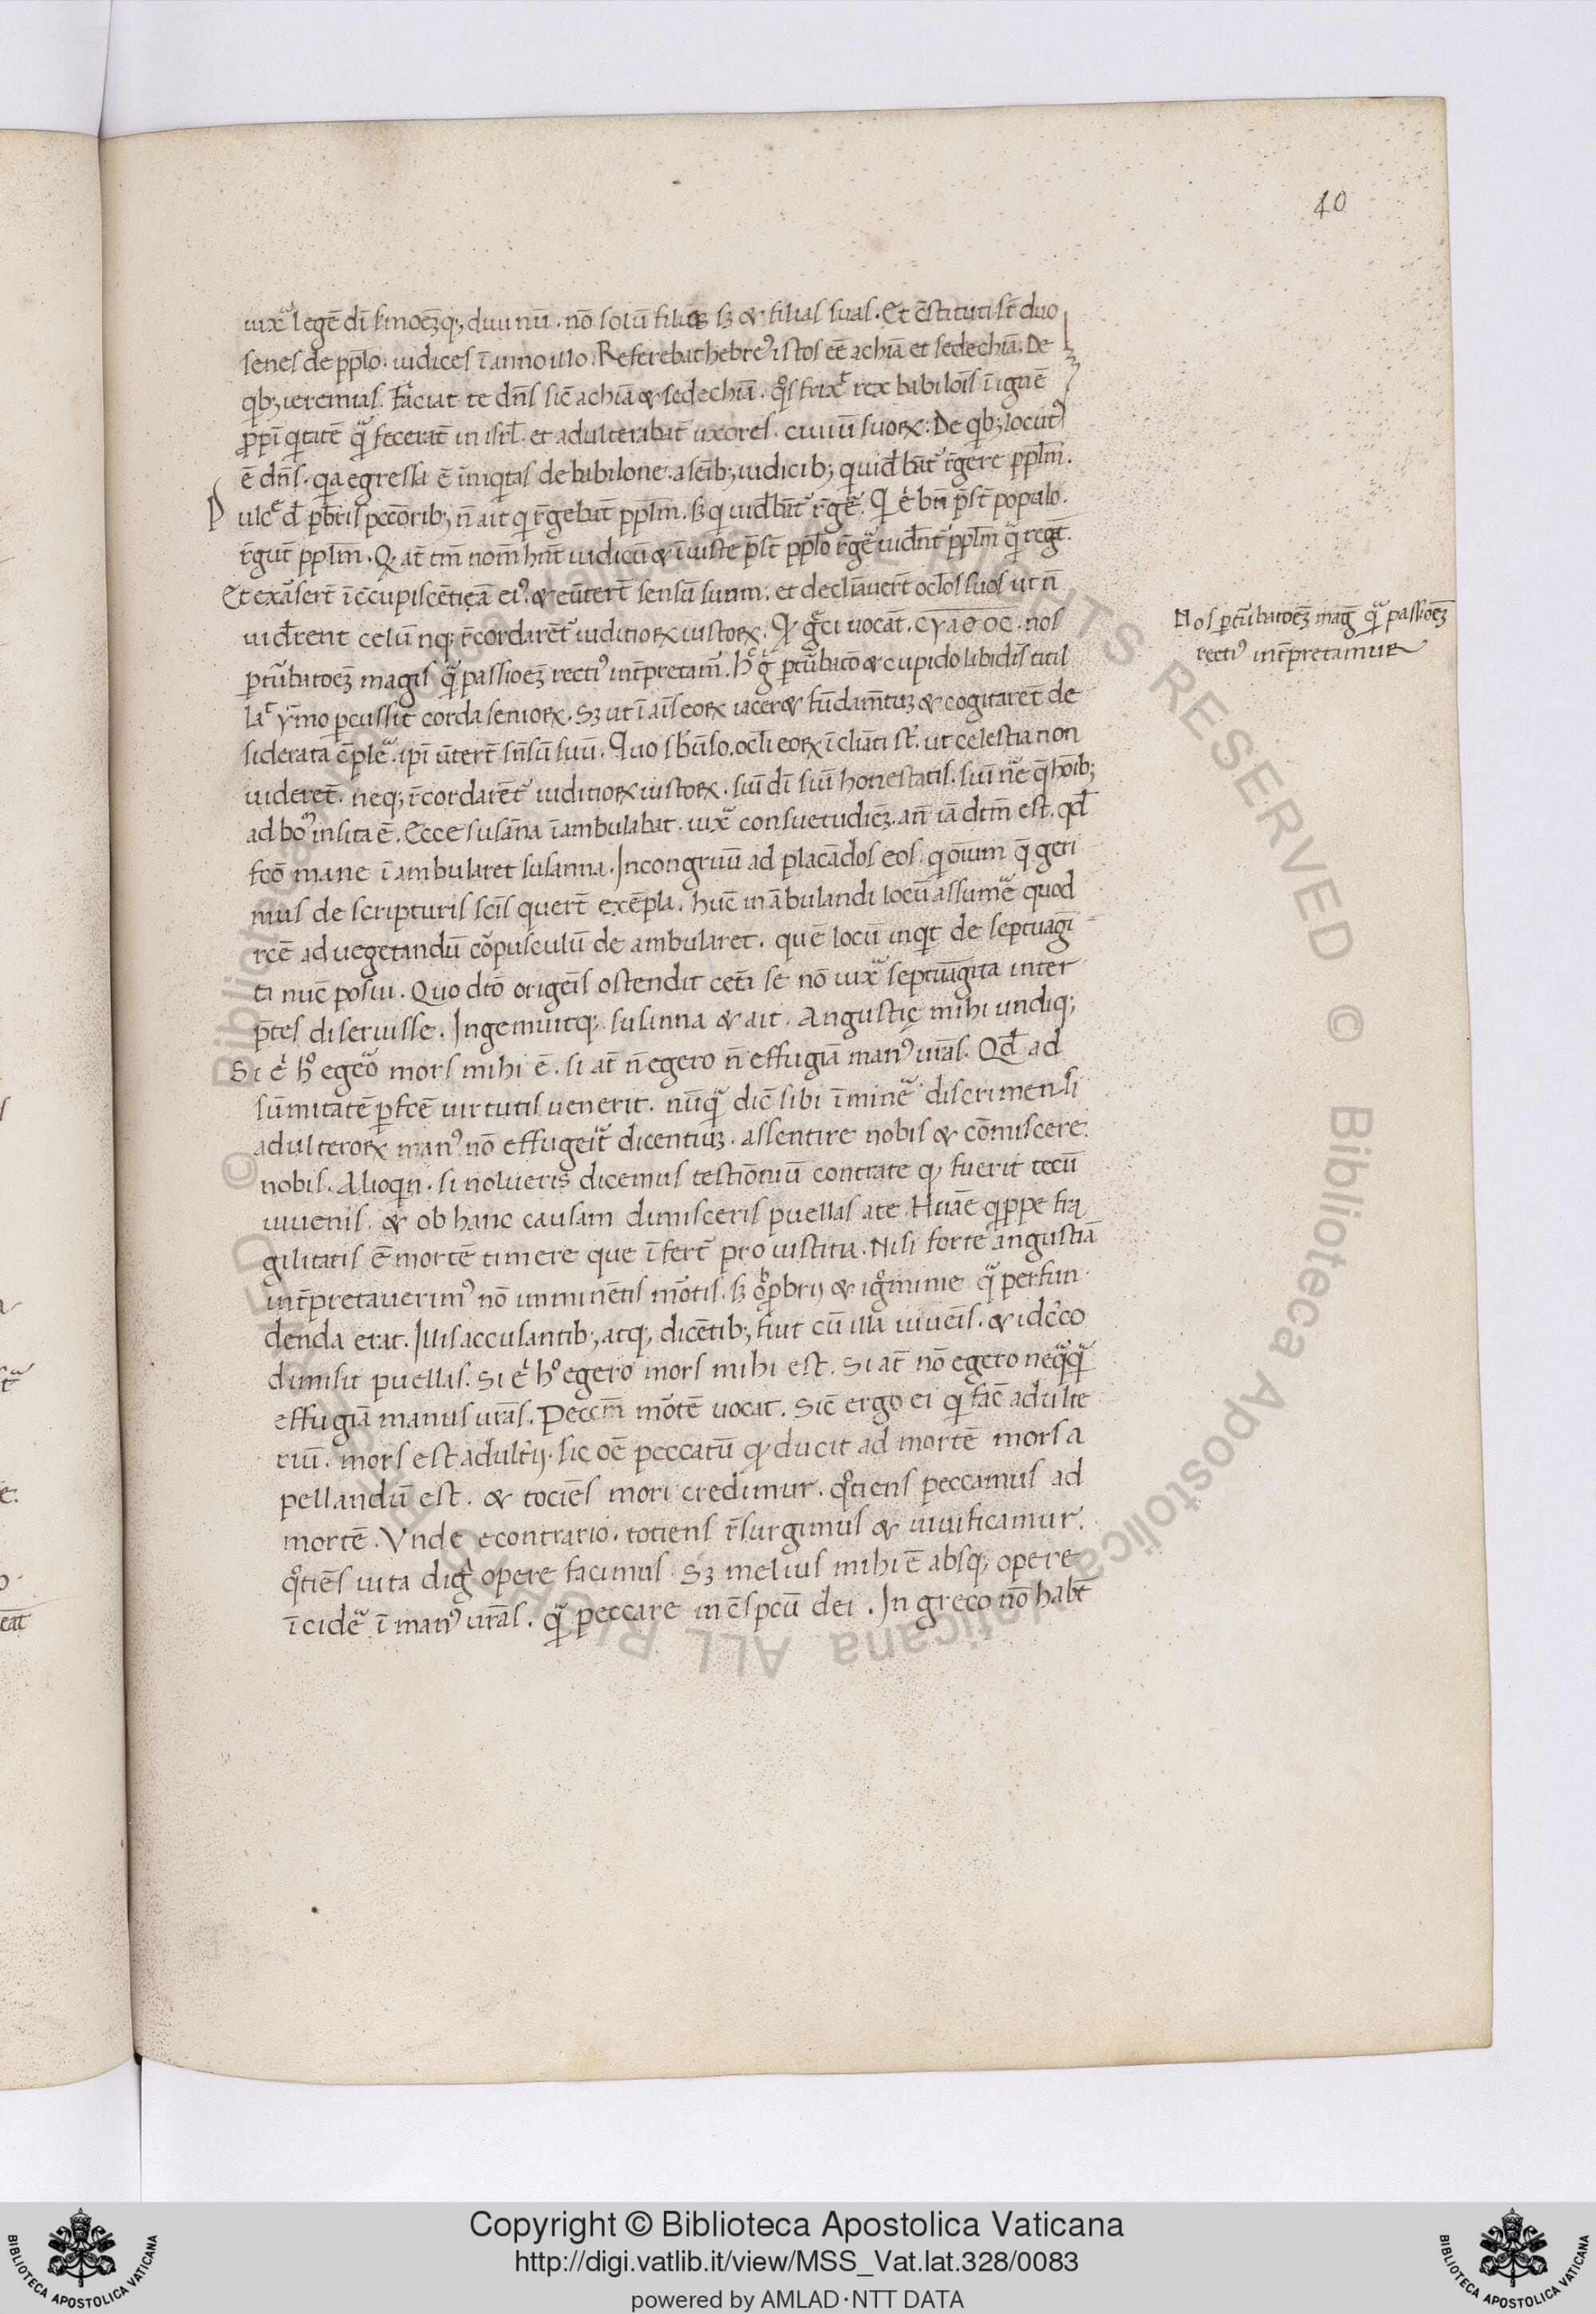 40
iuxͣ legē dī s̄moēꝫq; diuinū. nō solū filios sꝫ & filias suas. Et c̄stituti st̄ duo
senes de pp̄lo. iudices ī anno illo. Referebat hebreꝰ istos eē achiā et sedechiā. De
qb; ieremias. Faciat te dn̄s sic̄ achiā & sedechiā. qͦs frixͭ rex babilōis ī igne
ꝓpī qͥtatē qͣ̄ fecerāt in isrl̄. et adulterabāt uxores. ciuiū suoꝝ: De qb; locutꝰ
ē dn̄s. qa egressa ē īniqͥtas de babilone. a sēib; iudicib; qui uid̄bāt r̄gere pp̄lm̄.
Pulcͤ d̄ p̄b̄ris pecc̄orib; n̄ ait qi r̄gebāt pp̄lm̄. sꝫ qi uid̄bāt r̄gē. Qi .n. bn̄ p̄st̄ populo.
r̄gūt pp̄lm̄. Q. at̄ tm̄ nom̄ hn̄t iudicū & īiuste p̄st̄ pp̄lo r̄gē uid̄nt pp̄lm̄ qͣ̄ regt̄.
Et exāsert̄ ī c̄cupiscētiā eiꝰ. & eūtert̄ sensū suum. et declīauert̄ ocl̄os suos ut n̄
uid̄rent celū nq; r̄cordarēt iuditioꝝ iustoꝝ. Qͩ gͣci uocāt. CYAΘOC. nos
ꝑtūbatoēꝫ magis qͣ̄ passioēꝫ rectiꝰ int̄pretam̄. hͦ gͣ ꝑtūbatō & cupido libidīs titil
laͭ ymo ꝑcussit corda senioꝝ. Sꝫ ut ī aīs eoꝝ iaceret fūdam̄tuꝫ & cogitaret̄ de
siderata c̄plē. ipī ūtert̄ sn̄sū suū. Quo sb̄ūso. ocl̄i eoꝝ īclīati st̄. ut celestia non
uideret̄. neq; r̄cordarēt iuditioꝝ iustoꝝ. siue dī siue honestatis. siue nͣe q̄ hōib;
ad boͦ insita ē. Ecce susāna īambulabat. iuxͣ consuetudiēꝫ. an̄ iā dtm̄ est. qd̄
fcō mane īambularet susanna. Incongruū ad placādos eos. qi oīum q̄ geri
mus de scripturis sc̄is querūt exēpla. hūc inābulandi locū assumē quod
rcē ad uegetandū corpusculū deambularet. quē locū inqͥt de septuagī
ti nūc posui. Quo dtō origeīs ostendit cet̄i se nō iuxͣ septuagīta inter
p̄tes diseruisse. Ingemuitq; susanna & ait. Angustię mihi undiq;
Si .n. hͦ egeͦo mors mihi ē. si at̄ n̄ egero n̄ effugiā manꝰ ur̄as. Qd̄ ad
sūmitatē ꝑfcē uirtutis uenerit. nūqͣ dic̄ sibi īminē discrimen si
adulteroꝝ manꝰ nō effugeit dicentiuꝫ. assentire nobis & cōmiscere
nobis. Alioqn. si nolueris dicemus testiōniū contra te qͩ fuerit tecū
iuuenis. & ob hanc causam dimisceris puellas a te. Huāe qͥppe fra
gilitatis ē mortē timere que īfert̄ pro iustitia. Nisi forte angustiā
int̄pretauerimꝰ nō imminētis mōtis. sꝫ oꝓbrij & ignͦminie qͣ perfun
denda erat. Illis accusantib; atq; dicētib; fuit cū illa iuueīs. & idc̄co
dimisit puellas. Si .n. hͦ egero mors mihi est. Si at̄ nō egero neqͣqͣ
effugiā manus ur̄as. Peccm̄ mōtē uocat. Sic̄ ergo ei qi fac̄ adulte
riū. mors est adult̄ij. sic oē peccatū qͩ ducit ad mortē mors a
pellandū est. & tociēs mori credimur. qͦtiens peccamus ad
mortē. Vnde econtrario. totiens r̄surgimus & uiuificamur.
qͦtiēs uita dignͣ opere facimus. Sꝫ melius mihi ē absq; opere
īcidē ī manꝰ ur̄as. qͣ̄ peccare in c̄spcū dei. In greco nō habt̄
Nos ꝑtūbatoēꝫ maḡ qͣ̄ passioēꝫ
rectiꝰ int̄pretamur
© Biblioteca Apostolica Vaticana ALL RIGHTS RESERVED
Copyright © Biblioteca Apostolica Vaticana
http://digi.vatlib.it/view/MSS_Vat.lat.328/0083
powered by AMLAD·NTT DATA
BIBLIOTECA APOSTOLICA VATICANA
BIBLIOTECA APOSTOLICA VATICANA